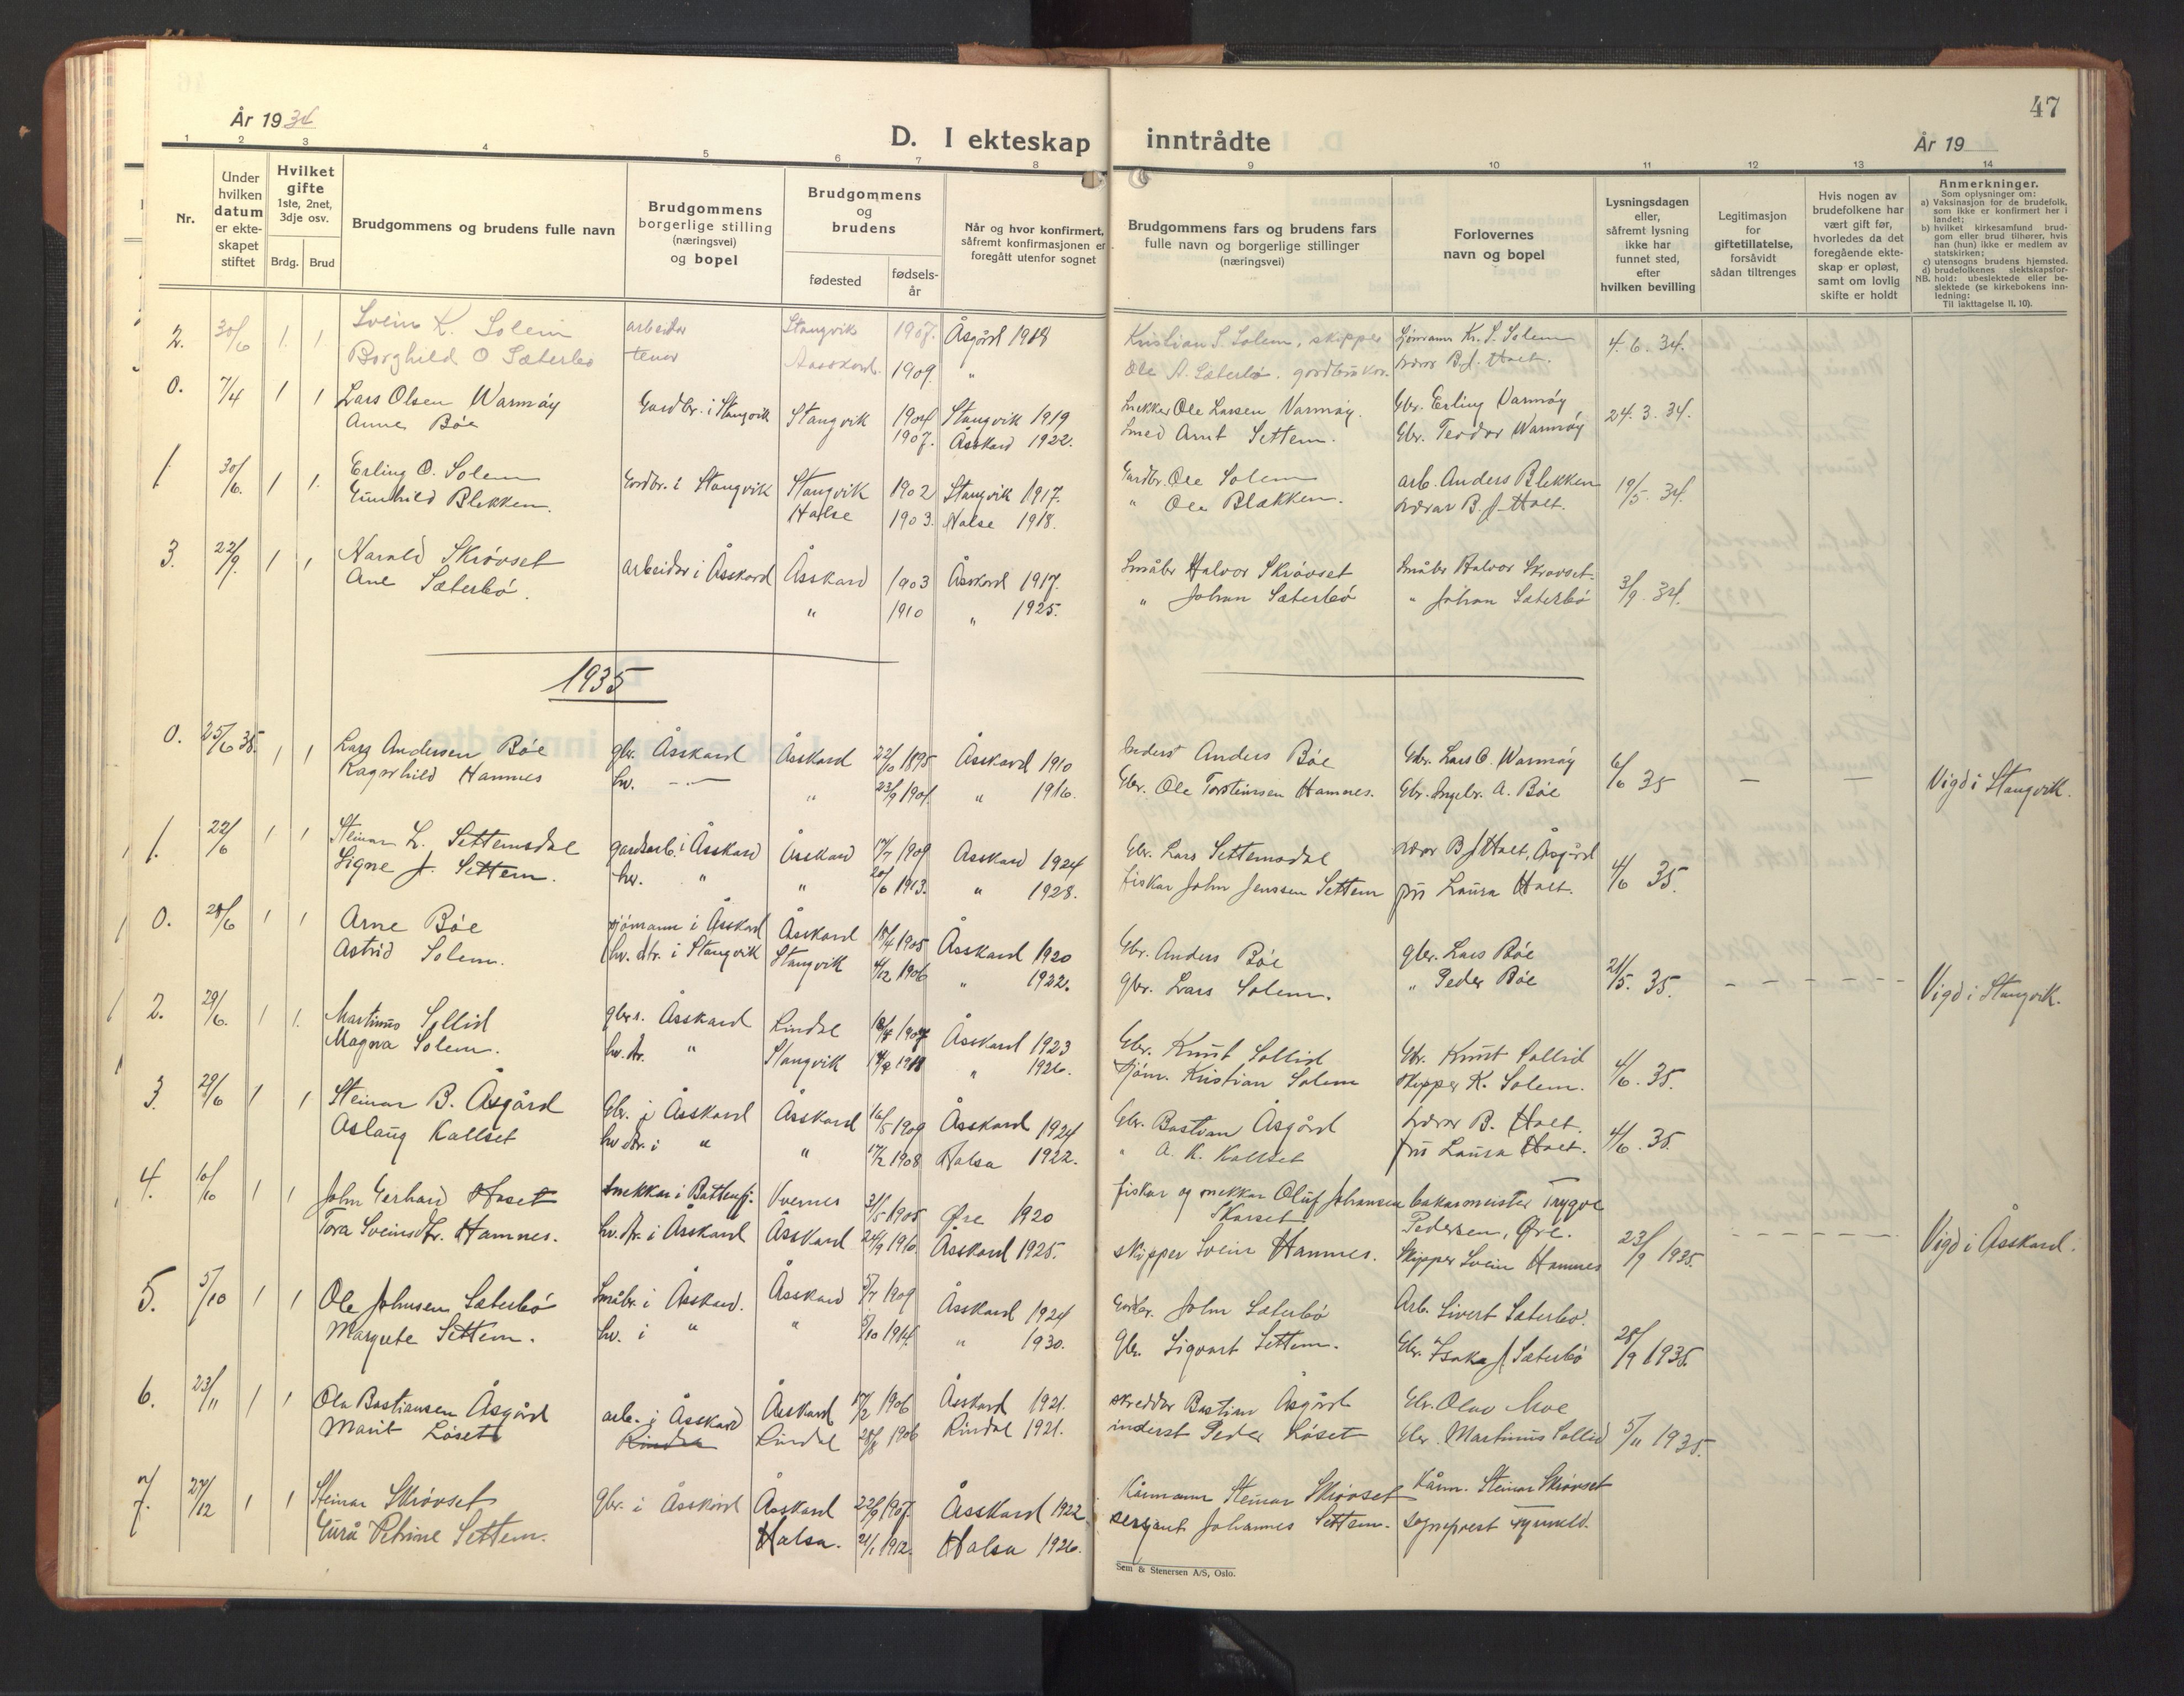 47
År 1934
D. I ekteskap inntrådte
År 19
1 2 3 4 5 6 7 8 9 10 11 12 13 14
Nr.
Under hvilken datum er ekte-skapet stiftet
Hvilket gifte 1ste, 2net, 3dje osv.
Brdg. Brud
Brudgommens og brudens fulle navn
Brudgommens borgerlige stilling (næringsvei) og bopel
Brudgommens og brudens
fødested
fødsels-år
Når og hvor konfirmert, såfremt konfirmasjonen er foregått utenfor sognet
Brudgommens fars og brudens fars fulle navn og borgerlige stillinger (næringsvei)
Forlovernes navn og bopel
Lysningsdagen eller, såfremt lysning ikke har funnet sted, efter hvilken bevilling
Legitimasjon for giftetillatelse, forsåvidt sådan tiltrenges
Hvis nogen av brudefolkene har vært gift før, hvorledes da det foregående ekte-skap er opløst, samt om lovlig skifte er holdt
Anmerkninger.
Som oplysninger om:
a) Vaksinasjon for de brudefolk, som ikke er konfirmert her i landet;
b) hvilket kirkesamfund brud-gom eller brud tilhører, hvis han (hun) ikke er medlem av statskirken;
c) utensogns brudens hjemsted.
d) brudefolkenes slektskapsfor-hold: ubeslektede eller be-slektede (se kirkebokens inn-ledning:
NB.
Til iakttagelse II, 10).
2. 30/6 1. 1. Svein K. Solem arbeider Stangvik 1907. Åsgård Kristian S. Solem, skipper Sjømann Kr. S. Solem 4.6.34.
Borghild O Sæterbø Aasskard. 1909. " Ole A. Sæterbø, lærar B. J. Holt.
0. 7/4 1 1 Lars Olsen Warmøy Gardbr. i Stangvik Stangvik 1904 Stangvik 1919 Snekker Ole Larsen Varmøy. Gbr. Erling Varmøy 24.3.34.
Anne Bøe 1907. Åsskard 1922. Smed Arnt Settem. Gbr. Teodor Warmøy
1 30/6. 1 1. Erling O. Solem Gardbr. i Stangvik Stangvik 1902 Stangvik 1917. Gardbr. Ole Solem arb. Anders Blekken 19/5. 34.
Gunhild Blekken. Halse 1903. Halse 1918. " Ole Blækken. lærar B. J. Holt.
3. 22/9. 1 1 Harald Skrøvset arbeidar i Åsskard Åsskard 1903 Åsskard 1917. Småbr Halvor Skrøvset Småbr Halvor Skrøvset 3/9. 34.
Ane Sæterbø. " 1910 " 1925. " Johan Sæterbø " Johan Sæterbø
1935
0. 25/6 35. 1 1 Lars Andersen Bøe gbr. Åsskard Åsskard 22/10 1895 Åsskard 1910 Inderst Anders Bøe Gbr. Lars O. Warmøy 6/6 35 — — Vigd i Stangvik.
Ragnhild Hamnes hv. —"— " 23/9 1901. " 1916. Gbr. Ole Torsteinsen Hamnes. Gbr. Ingebr. A. Bøe
1. 22/6 1 1 Steinar L. Settemsdal gardsarb. i Åsskard Åsskard 17/7 1909 Åsskard 1924 Gbr. Lars Settemsdal lærar B J Holt, Åsgård 4/6 35.
Signe J. Settem. hv. " " 20/6 1913. " 1928. fiskar John Jenssen Settem fru Laura Holt.
0. 28/6 1 1 Arne Bøe sjømann i Åsskard Åsskard 18/4 1905 Åsskard 1920 Gbr. Anders Bøe gbr. Lars Bøe 21/5. 35. Vigd i Stangvik.
Astrid Solem. hv. dtr. i Stangvik Stangvik 4/12 1906 " 1922. gbr. Lars Solem. " Peder Bøe
2. 29/6. 1 1. Martinus Sollid gbr. i. Åsskard Rindal 18/4 Åsskard 1923 Gbr. Knut Sollid Gbr. Knut Sollid 4/6. 35.
Magna Solem. hv. dtr. " Stangvik " 1926. sjøm. Kristian Solem skipper K. Solem.
3. 29/6 1 1 Steinar B. Åsgård Gbr. i Åsskard Åsskard 16/5 1909 Åsskard 1924 Gbr. Bastian Åsgård lærar B. Holt. 4/6. 35.
Aslaug Kallset hv dtr. i " " 17/2 1908 Halsa 1922. " A. K. Kallset fru Laura Holt.
4. 10/10 1 1 John Gerhard snekkar i Battenfj. Øre 1920 fiskar og snekkar Oluf Johansen Skarset bakarmeister Trygve Pedersen, Øre. 23/9 1935. Vigd i Åsskard.
Tora Sveinsdtr. Hamnes. hv. dtr. i Åsskard Åsskard 24/9 1910. Åsskard 1925. skipper Svein Hamnes. Skipper Svein Hamnes
5. 5/10 1 1 Ole Johnsen Sæterbø Småbr. i Åsskard. Åsskard 5/7 1909 Åsskard 1924 Gardbr. John Sæterbø Arb. Sivert Sæterbø. 28/9 1935.
Margrete Settem. hv. i " " 5/10 1914. " 1930. Gbr. Sigvart Settem. Gbr. Isak J Sæterbø
6. 23/11 1 1 Ola Bastiansen Åsgård arb. i Åsskard Åsskard 17/2 1906 Åsskard 1921. skreddar Bastian Åsgård Gbr. Olav Moe 5/11 1935.
Marit Løset Rindal Rindal 28/8 1906 Rindal 1921. inderst Peder Løset Gbr. Martinus Sollid
7. 27/12 1 1 Steinar Skrøvset gbr. i Åsskard Åsskard 22/9 1907. Åsskard 1922 Kårmann Steinar Skrøvset Kårm. Steinar Skrøvset
Gurå Petrine Settem. Halsa. 21/1 1912. Halsa 1926. sersjant Johannes Settem. sogneprest
Sem & Stenersen A/S, Oslo.